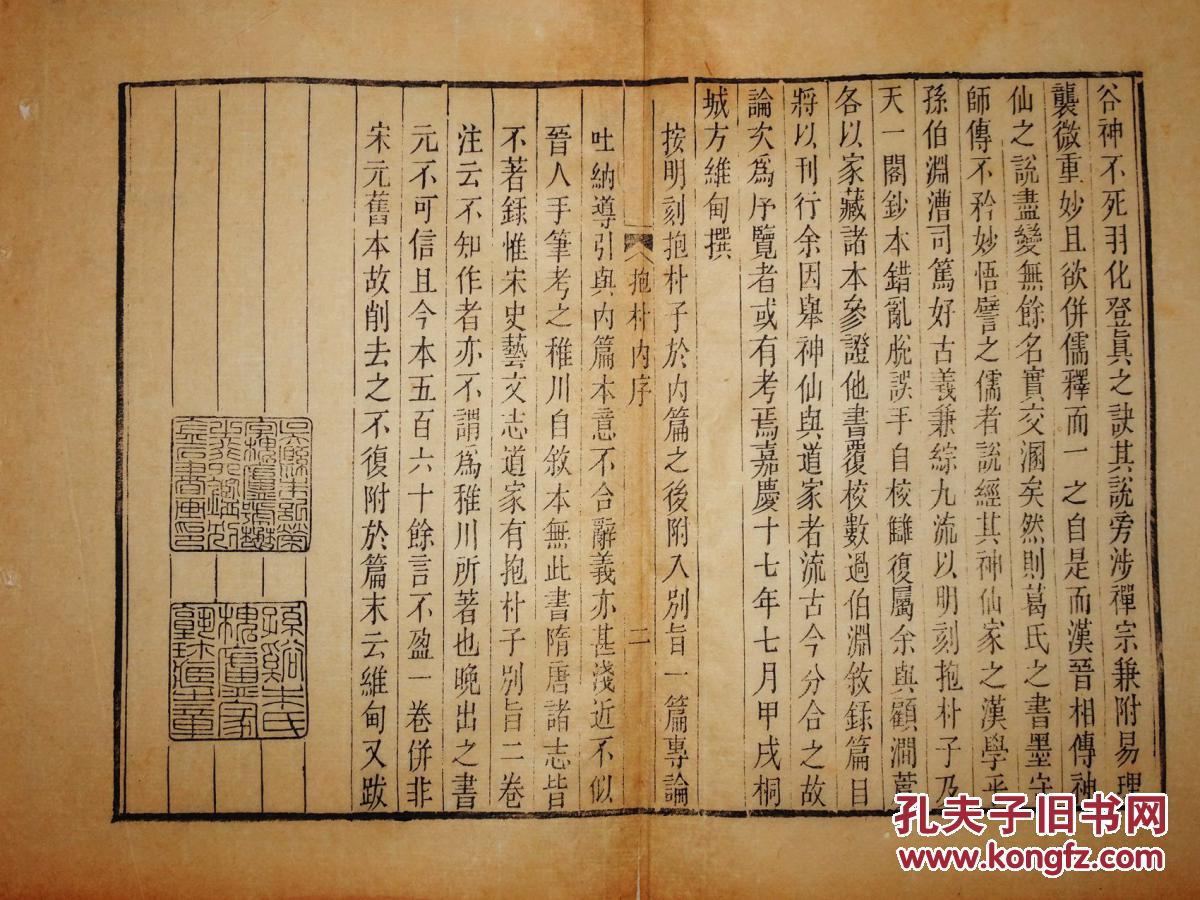 谷神不死羽化登真之訣其說旁涉禪宗兼附易理
襲微重妙且欲併儒釋而一之自是而漢晉相傳神
仙之說盡變無餘名實交溷矣然則葛氏之書墨守
師傳不矜妙悟譬之儒者說經其神仙家之漢學乎
孫伯淵漕司篤好古義兼綜九流以明刻抱朴子及
天一閣鈔本錯亂脫誤手自校讎復屬余與顧澗薲
各以家藏諸本參證他書覆校數過伯淵敘錄篇目
將以刊行余因舉神仙與道家者流古今分合之故
論次爲序覽者或有考焉嘉慶十七年七月甲戌桐
城方維甸撰
按明刻抱朴子於內篇之後附入別旨一篇專論
抱朴內序
二
吐納導引與內篇本意不合辭義亦甚淺近不似
晉人手筆考之稚川自敘本無此書隋唐諸志皆
不著錄惟宋史藝文志道家有抱朴子別旨二卷
注云不知作者亦不謂爲稚川所著也晚出之書
元不可信且今本五百六十餘言不盈一卷併非
宋元舊本故削去之不復附於篇末云維甸又跋
孫谿朱氏
槐廬家
孔夫子旧书网
www.kongfz.com